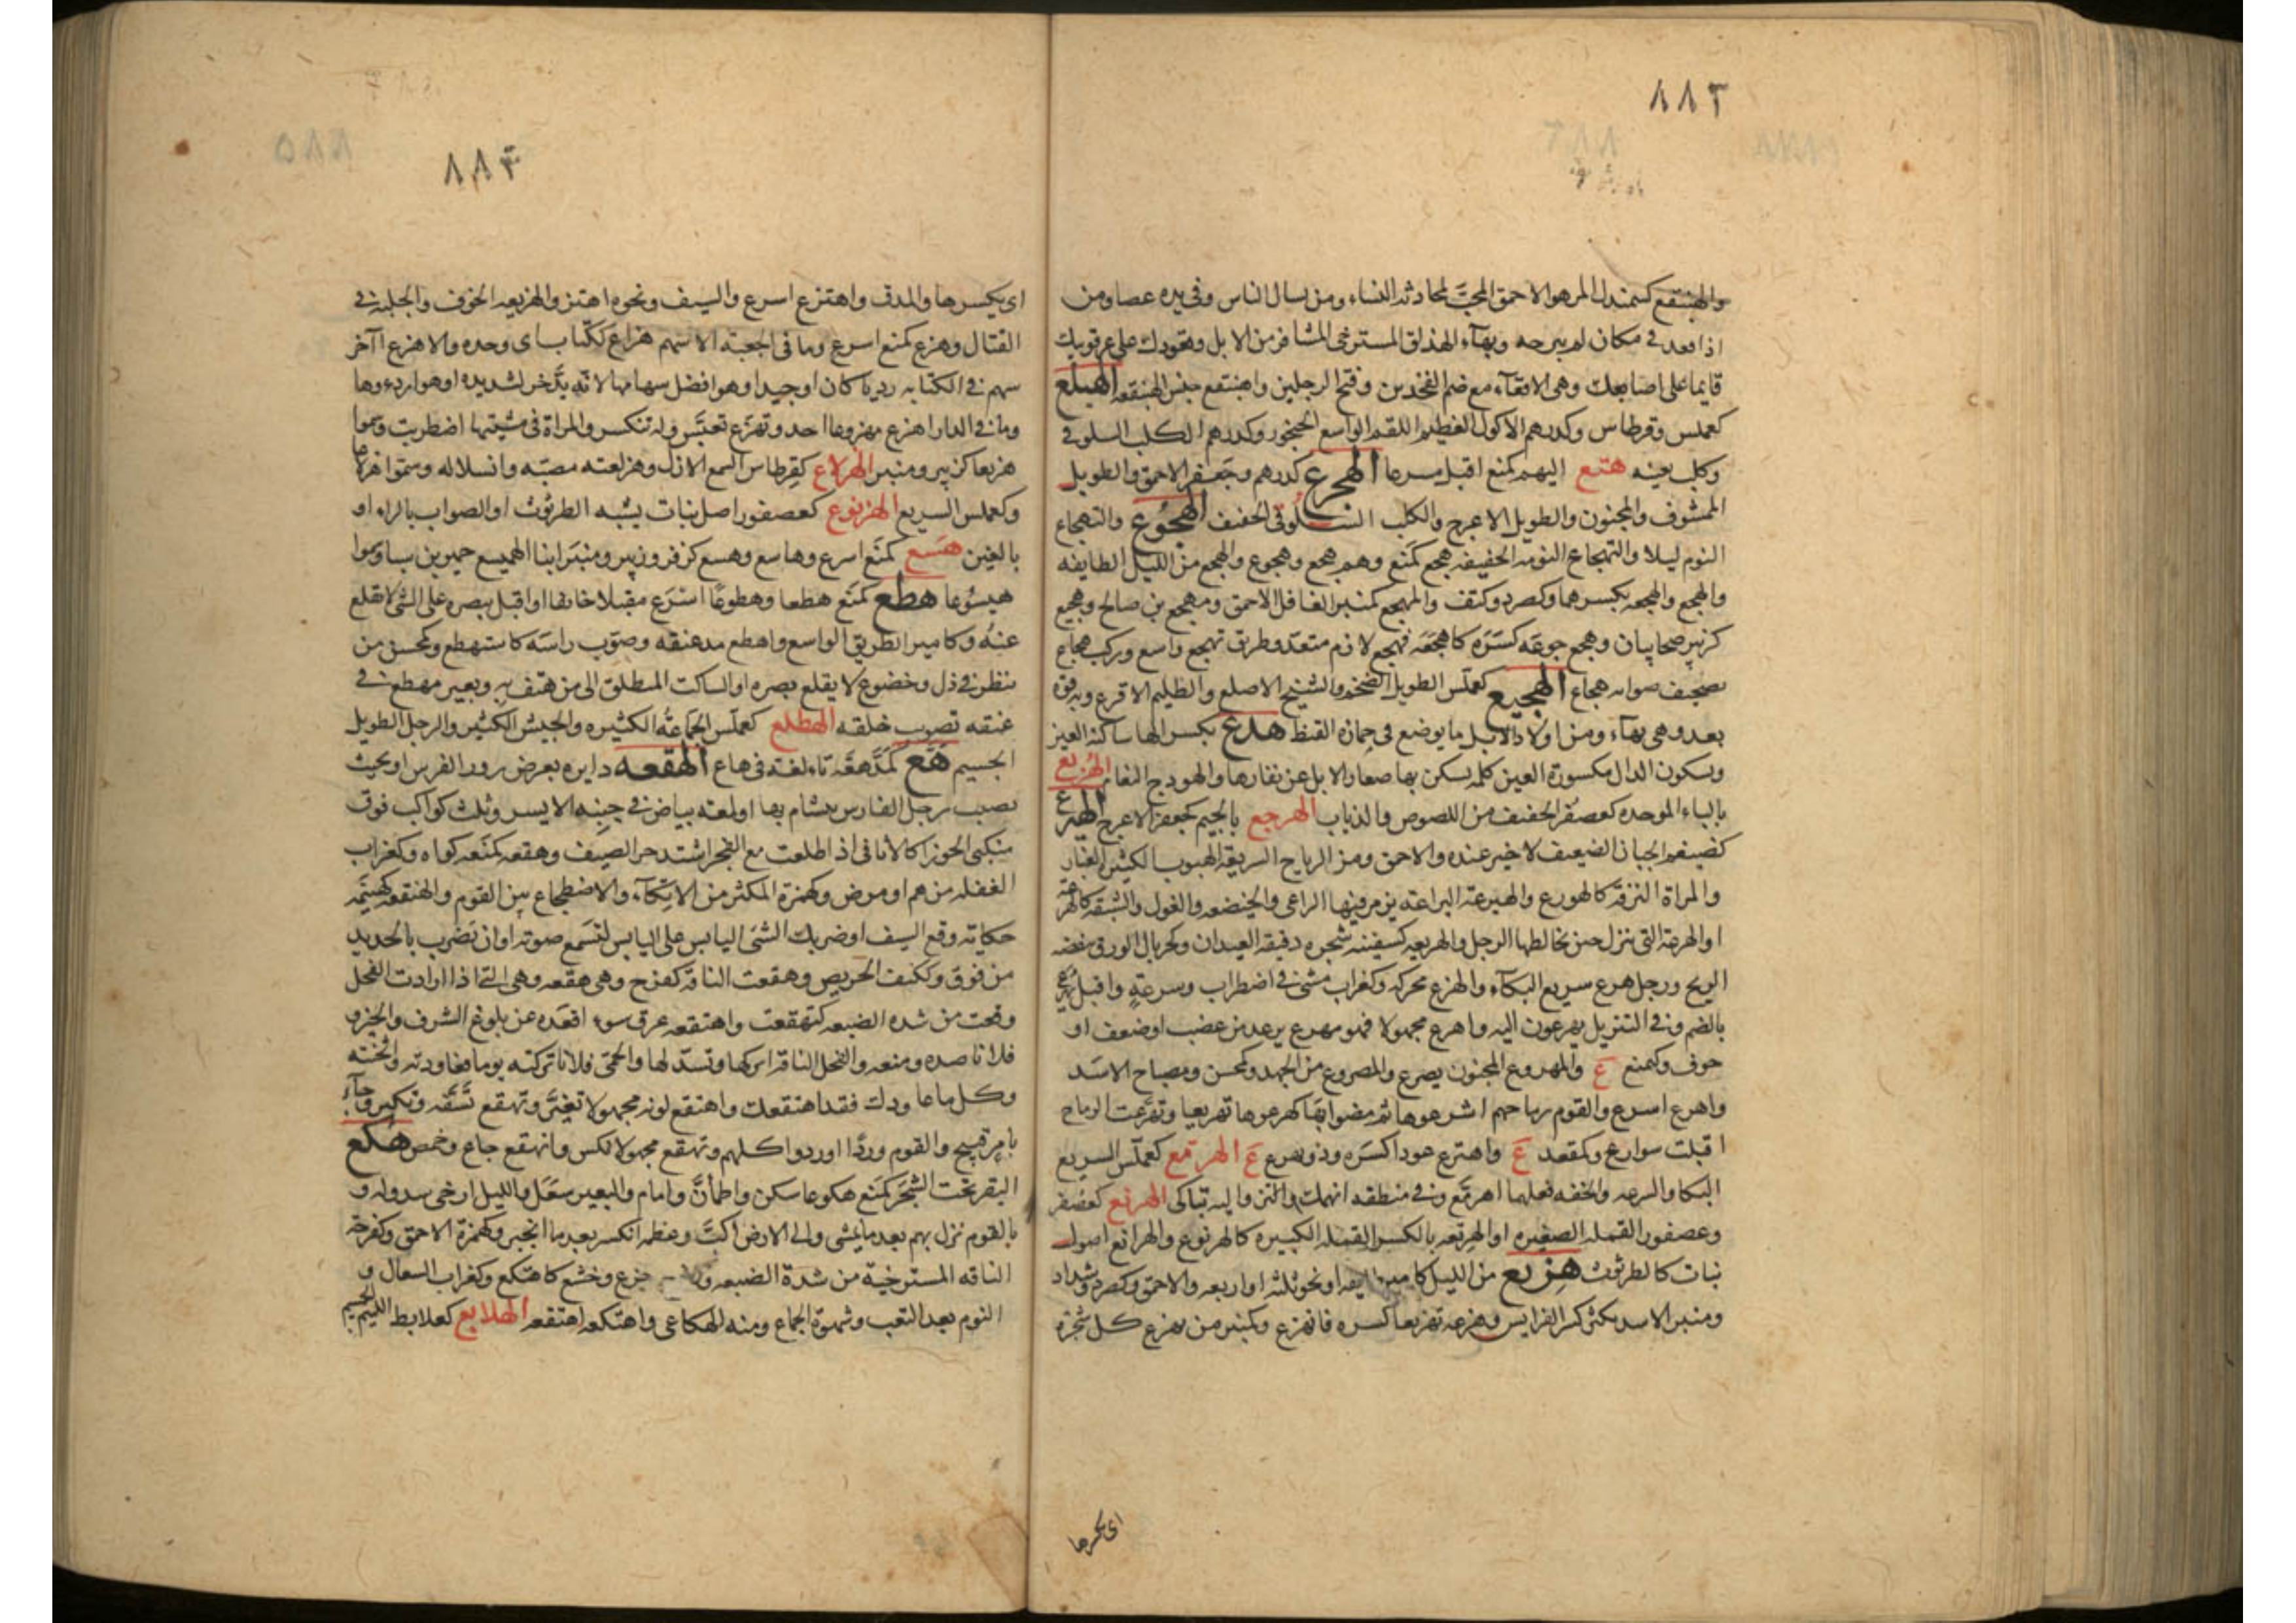 ٨٨٢
والهبنقع كسمندل المزهو الاحمق المحبّ لمحادثه النساء ومن يسال الناس وفي يده عصا ومن
اذا قعد في مكان لم يبرحه وبهآء الهذلق المسترخى المشافر من الابل وقعودك على عرقوبيك
قايما على اصابعك وهى الاقعآء مع ضم الفخذين وفتح الرجلين واهبنقع جلس الهبنقعه الهبلع
كعملس وقرطاس وكدرهم الاكول العظيم اللقم الواسع الحنجور وكدرهم الكلب السلوقى
وكلب بعينه هتع اليهم كمنع اقبل مسرعا الهجرع كدرهم وجعفر الاحمق والطويل
الممشوق والمجنون والطويل الاعرج والكلب السلوقى الخفيف الهجوع والتهجاع
النوم ليلا والتهجاع النومه الخفيفه هجع كمنع وهم هجع وهجوع والهجع من الليل الطايفه
والهجع والهجعه بكسرهما وكصرد وكتف والمهجع كمنبر الغافل الاحمق ومهجع بن صالح وهجيع
كزبير صحابيان وهجع جوعه كسره كاهجعه فهجع لازم متعد وطريق تهجع واسع وركب هجاع
تصحيف صوابه هجاع الهجيع كعملس الطويل الضخم والشيخ الاصلع والظليم الاقرع وبه قوة
بعد وهى بهآء ومن اولاد الابل ما يوضع فى حمارة القيظ هدع بكسر الها ساكنة العين
وبسكون الدال مكسورة العين كلمه يسكن بها صغار الابل عن نفارها والهودج النعام الهربع
بالباء الموحده كعصفر الخفيف من اللصوص والذياب الهرجع بالجيم كجعفر الاعرج الهيرع
كضيغم الجبان الضعيف لا خير عنده والاحمق ومن الرياح السريعة الهبوب الكثير الغبار
والمراة النزقة كالهورع والهيرعة اليراعة يزمر فيها الراعى والخيضعه والغول والشبقه كالهرعة
او الهرعة التى تنزل حين يخالطها الرجل والهريعه كسفينه شجره دقيقة العيدان وكجربال الورق ينفضه
الريح ورجل هرع سريع البكآء والهرع محركه وكغراب مشى فى اضطراب وسرعة واقبل يهرع
بالضم وفى التنزيل يهرعون اليه واهرع مجهولا فهو مهرع يرعد من غضب او ضعف او
خوف وكمنع ع والمهروع المجنون يصرع والمصروع من الجهد وكمحسن ومصباح الاسد
واهرع اسرع والقوم رماحهم اشرعوها ثم مضوا بها كهرعوها تهريعا وتهرعت الرماح
اقبلت سوارع وكمقعد ع واهترع عودا كسره وذو يهرع ع الهرمع كعملس السريع
البكا والسرعه والخفه فعلهما اهرمع وفى منطقه انهمك واكثر واليه تباكى الهرنع كعصفر
وعصفور القمله الصغيره او الهرنعه بالكسر القمله الكبيره كالهرنوع والهرانع اصول
نبات كالطرثوث هزيع من الليل كامير طايفه او نحو ثلثه او اربعه والاحمق وكصرد وشداد
ومنبر الاسد يكثر كسر الفرايس وهزعه تهزيعا كسره فانهزع وكمنبر من يهزع كل شجرة
اى يكسرها
٨٨٣
اى يكسرها والمدق واهتزع اسرع والسيف ونحوه اهتز والهزيعه الخوف والجلبة فى
القتال وهزع كمنع اسرع وما فى الجعبة الا سهم هزاع ككتاب اى وحده والاهزع آخر
سهم فى الكنانه رديا كان او جيدا وهو افضل سهامها لانه يدّخر لشديده او هو اردءوها
وما فى الدار اهزع مهزوعا احد وتهزع تعبّس وله تنكس والمراة فى مشيتها اضطربت وسموا
هزيعا كزبير ومنبر الهزلاع كقرطاس السمع الازل وهزلعته مضيّه وانسلاله وسموا هزلاعا
وكعملس السريع الهزنوع كعصفور اصل نبات يشبه الطرثوث او الصواب بالراء او
بالغين هسع كمنع اسرع وهاسع وهسع كزفر وزبير ومنبر ابنا الهميسع حمير بن سبا وسموا
هيسوعا هطع كمنع هطعا وهطوعا اسرع مقبلا خايفا او اقبل ببصره على الشى لا يقلع
عنه وكامير الطريق الواسع واهطع مد عنقه وصوّب راسه كاستهطع وكمحسن من
ينظر فى ذل وخضوع لا يقلع بصره او الساكت المنطلق الى من هتف به وبعير مهطع فى
عنقه تصويب خلقه الهطلع كعملس الجماعة الكثيره والجيش الكثير والرجل الطويل
الجسيم هع كمد هعة تاء لغة فى هاع الهقعه دايره بعرض زور الفرس او بحيث
تصيب رجل الفارس يتشام بها او لمعة بياض فى جنبه الايسر وثلث كواكب فوق
منكبى الجوزا كالاثافى اذا طلعت مع الفجر اشتد حر الصيف وهقعه كمنعه كواه وكغراب
الغفله من هم او مرض وكهمزة المكثر من الاتكآء والاضطجاع بين القوم والهنقعه كهينمه
حكاية وقع السيف او ضربك الشى اليابس على اليابس لتسمع صوته او ان تضرب بالحديد
من فوق وككتف الحريص وهقعت الناقه كفرح وهى هقعه وهى التى اذا ارادت الفحل
وقعت من شده الضبعه كتهقعت واهتقعه عرق سوء اقعده عن بلوغ الشرف والخير و
فلانا صده ومنعه والفحل الناقه ابركها وتسدّ لها والحمى فلانا تركته يوما فعاودته واثخنته
وكل ما عاودك فقد اهتقعك واهتقع لونه مجهولا تغيّر وتهقع تسفّه وتكبر وجآء
بامر قبيح والقوم وردا اوردوا كلهم وتهقع مجهولا نكس وانهقع جاع وخمص هكع
البقر تحت الشجر كمنع هكوعا سكن واطمأنّ وامام والبعير سعل والليل ارخى سدوله و
بالقوم نزل بهم بعد ما يمشى والى الارض اكبّ وعظمه انكسر بعد ما انجبر وكهمزة الاحمق وكفرحه
الناقه المسترخية من شدة الضبعه و جزع وخشع كاهتكع وكغراب السعال و
النوم بعد التعب وشهوة الجماع ومنه الهكاعى واهتكعه اهتقعه الهلابع كعلابط اللئيم الجسيم